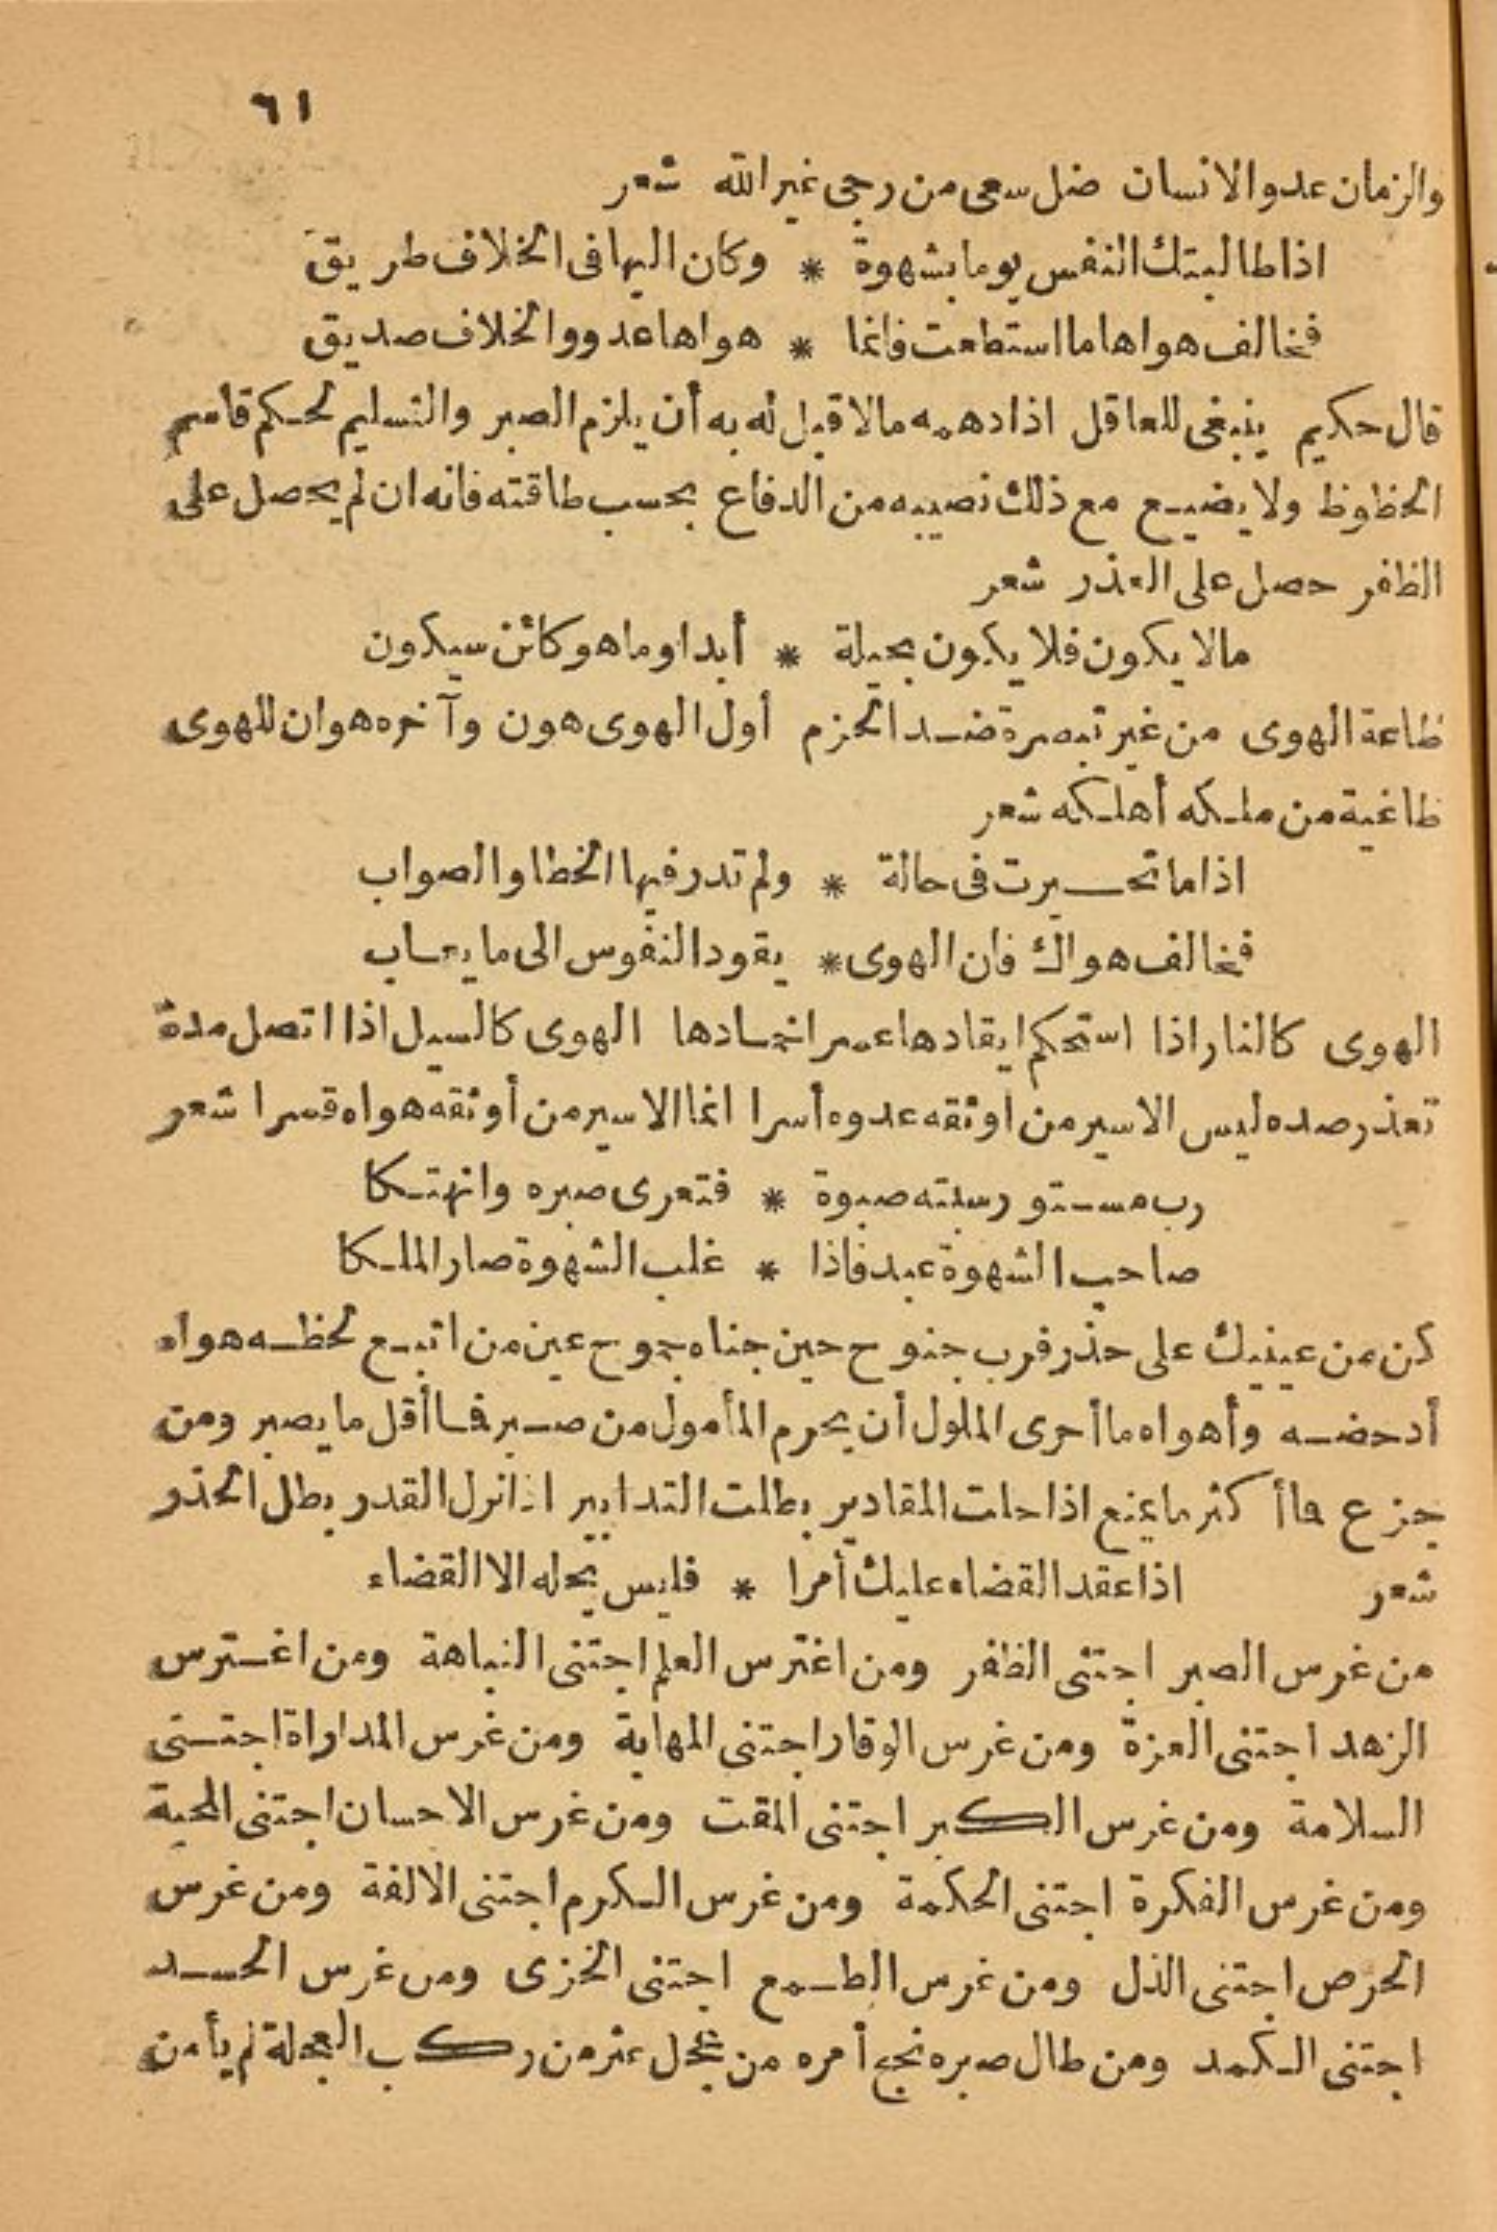 ٦١
والزمان عدو الانسان ضل سعى من رجى غير الله شعر
اذا طالبتك النفس يوما بشهوة * وكان اليها فى الخلاف طريق
فخالف هواها ما استطعت فانما * هواها عدو والخلاف صديق
قال حكيم ينبغى للعاقل اذا دهمه مالا قبل له به أن يلزم الصبر والتسليم لحكم قاسم
الحظوظ ولا يضيع مع ذلك نصيبه من الدفاع بحسب طاقته فانه ان لم يحصل على
الظفر حصل على العذر شعر
مالا يكون فلا يكون بحيلة * أبدا وما هو كائن سيكون
طاعة الهوى من غير تبصرة ضد الحزم أول الهوى هون وآخره هوان للهوى
طاغية من ملكه أهلكه شعر
اذا ما تحيرت فى حالة * ولم تدر فيها الخطا والصواب
فخالف هواك فان الهوى * يقود النفوس الى ما يعاب
الهوى كالنار اذا استحكم ايقادها عسر اخمادها الهوى كالسيل اذا اتصل مدة
تعذر صده ليس الاسير من أوثقه عدوه أسرا انما الاسير من أوثقه هواه قسرا شعر
رب مستور سبته صبوة * فتعرى صبره وانهتكا
صاحب الشهوة عبد فاذا * غلب الشهوة صار الملكا
كن من عينيك على حذر فرب جنوح حين جناه جموح عين من اتبع لحظه هواه
أدحضه وأهواه ما أحرى الملول أن يحرم المأمول من صبر فما أقل ما يصبر ومن
جزع فما أكثر ما يمنع اذا حلت المقادير بطلت التدابير اذا نزل القدر بطل الحذر
شعر اذا عقد القضاء عليك أمرا * فليس يحله الا القضاء
من غرس الصبر اجتنى الظفر ومن اغترس العلم اجتنى النباهة ومن اغترس
الزهد اجتنى العزة ومن غرس الوقار اجتنى المهابة ومن غرس المداراة اجتنى
السلامة ومن غرس الكبر اجتنى المقت ومن غرس الاحسان اجتنى المحبة
ومن غرس الفكرة اجتنى الحكمة ومن غرس الكرم اجتنى الالفة ومن غرس
الحرص اجتنى الذل ومن غرس الطمع اجتنى الخزى ومن غرس الحسد
اجتنى الكمد ومن طال صبره نجح أمره من عجل عثر من ركب العجلة لم يأمن